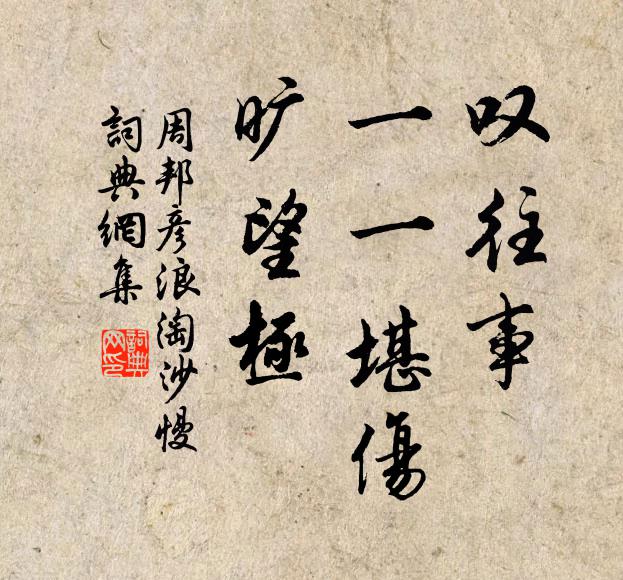 叹往事
一一堪傷
旷望極
周邦彦浪淘沙慢
詞典網集
詞典
网印